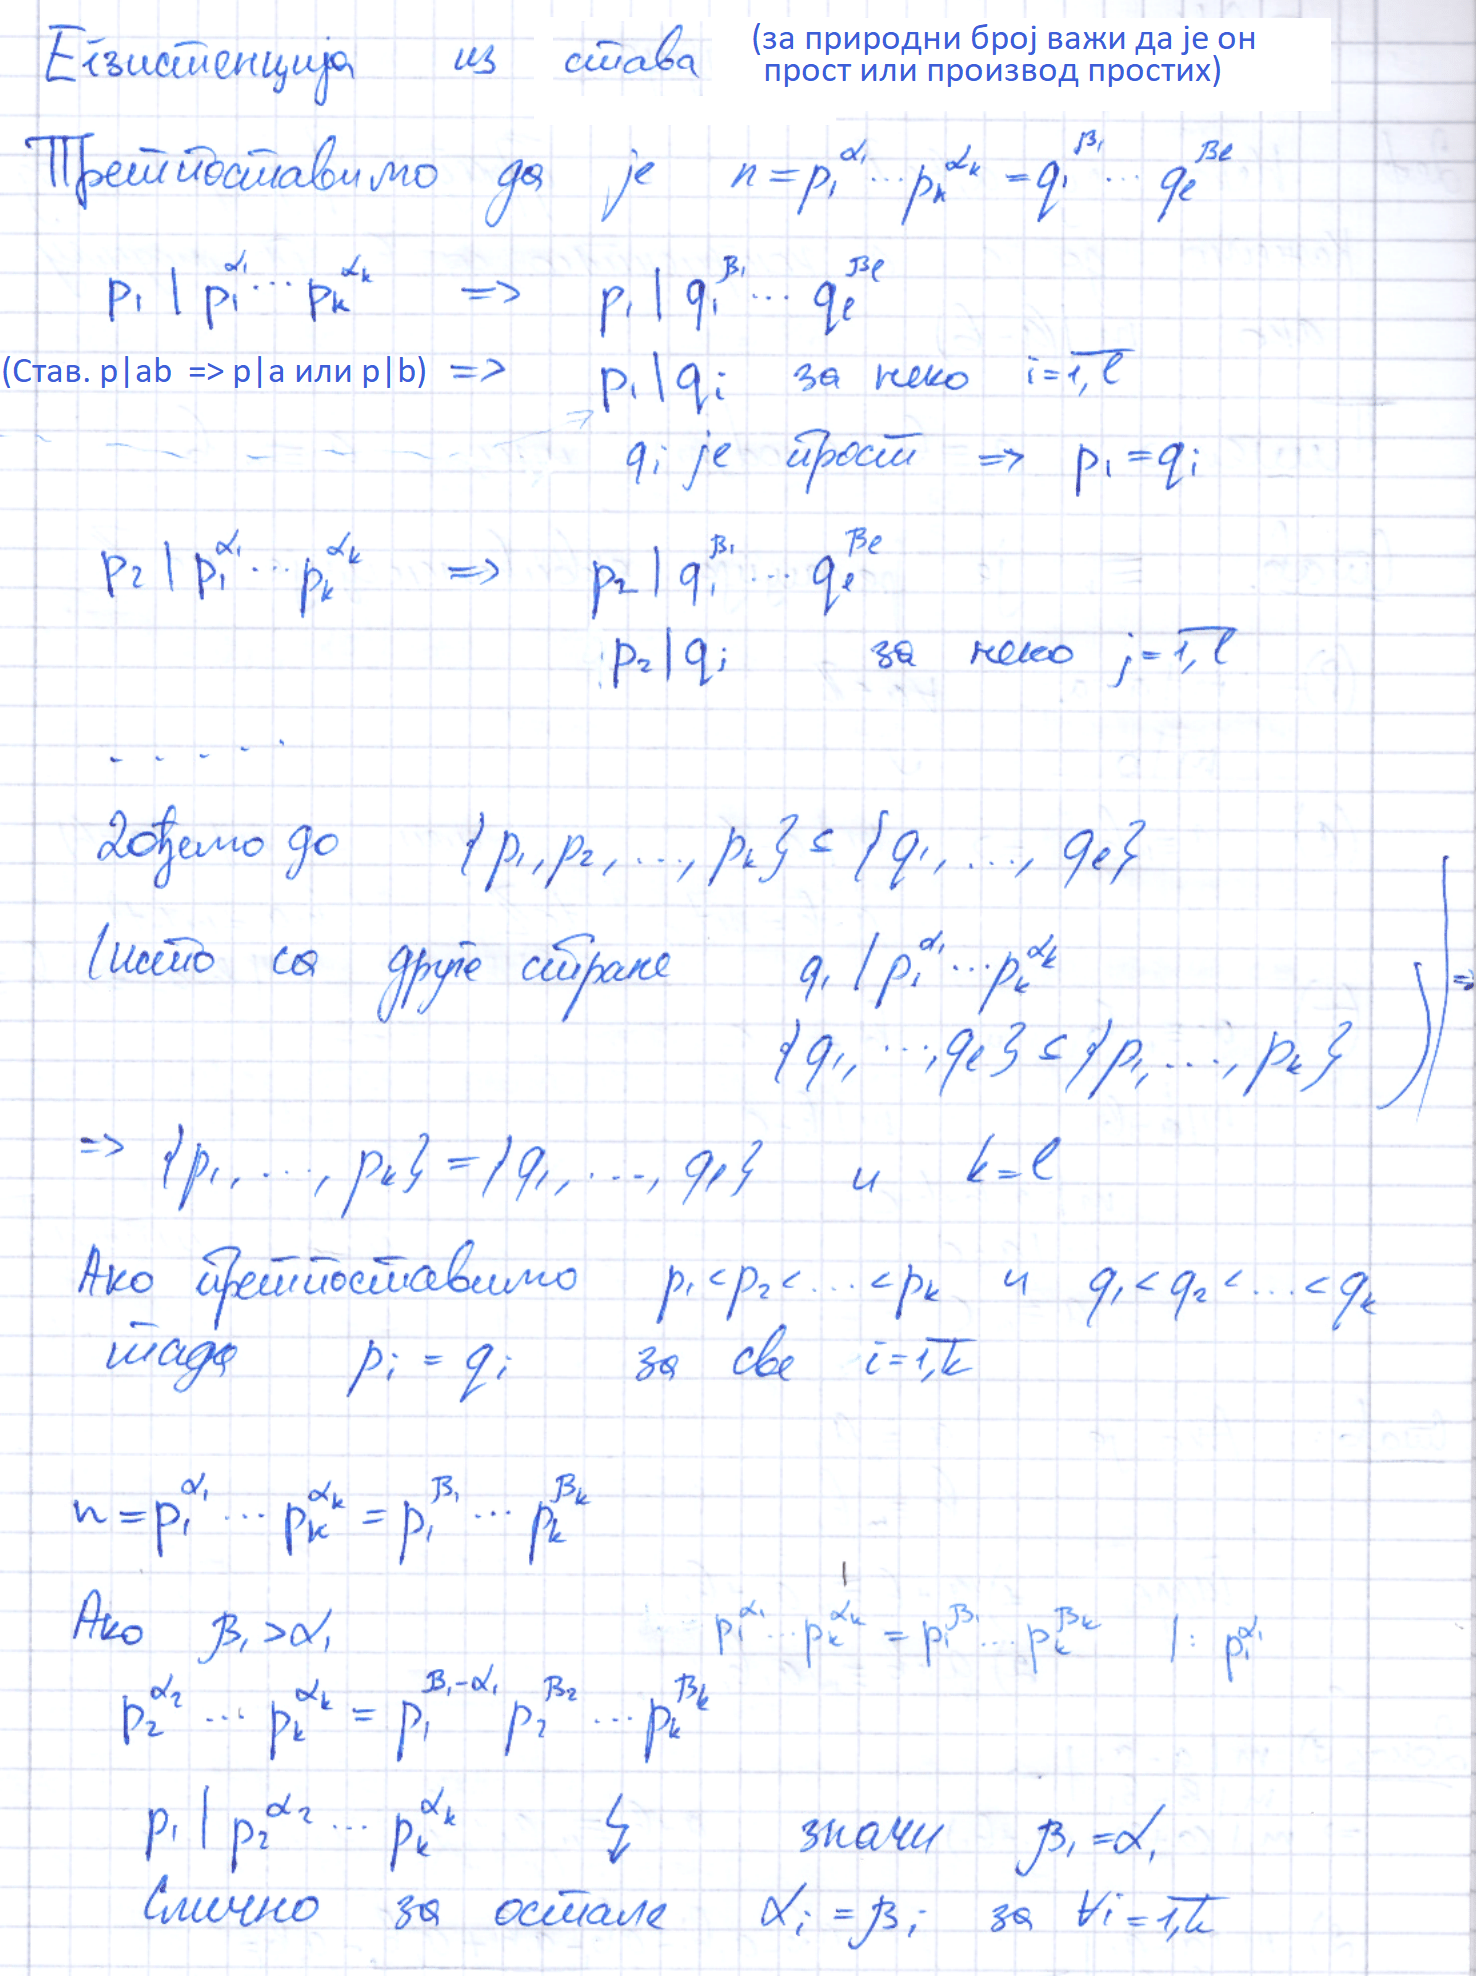 Егзистенција из става (за природни број важи да је он
прост или производ простих)
Претпоставимо да је n = p₁^α₁ ... pₖ^αₖ = q₁^β₁ ... qₗ^βₗ
p₁ | p₁^α₁ ... pₖ^αₖ => p₁ | q₁^β₁ ... qₗ^βₗ
(Став. p|ab => p|a или p|b) => p₁ | qᵢ за неко i = 1,l
qᵢ је прост => p₁ = qᵢ
p₂ | p₁^α₁ ... pₖ^αₖ => p₂ | q₁^β₁ ... qₗ^βₗ
p₂ | qⱼ за неко j = 1,l
. . . . .
Дођемо до {p₁, p₂, ..., pₖ} ⊆ {q₁, ..., qₗ}
(исто са друге стране q₁ | p₁^α₁ ... pₖ^αₖ
{q₁, ..., qₗ} ⊆ {p₁, ..., pₖ} ) =>
=> {p₁, ..., pₖ} = {q₁, ..., qₗ} и k = l
Ако претпоставимо p₁ < p₂ < ... < pₖ и q₁ < q₂ < ... < qₖ
тада pᵢ = qᵢ за све i = 1,k
n = p₁^α₁ ... pₖ^αₖ = p₁^β₁ ... pₖ^βₖ
Ако β₁ > α₁ p₁^α₁ ... pₖ^αₖ = p₁^β₁ ... pₖ^βₖ |: p₁^α₁
p₂^α₂ ... pₖ^αₖ = p₁^(β₁-α₁) p₂^β₂ ... pₖ^βₖ
p₁ | p₂^α₂ ... pₖ^αₖ ↯ значи β₁ = α₁
Слично за остале αᵢ = βᵢ за ∀i = 1,k